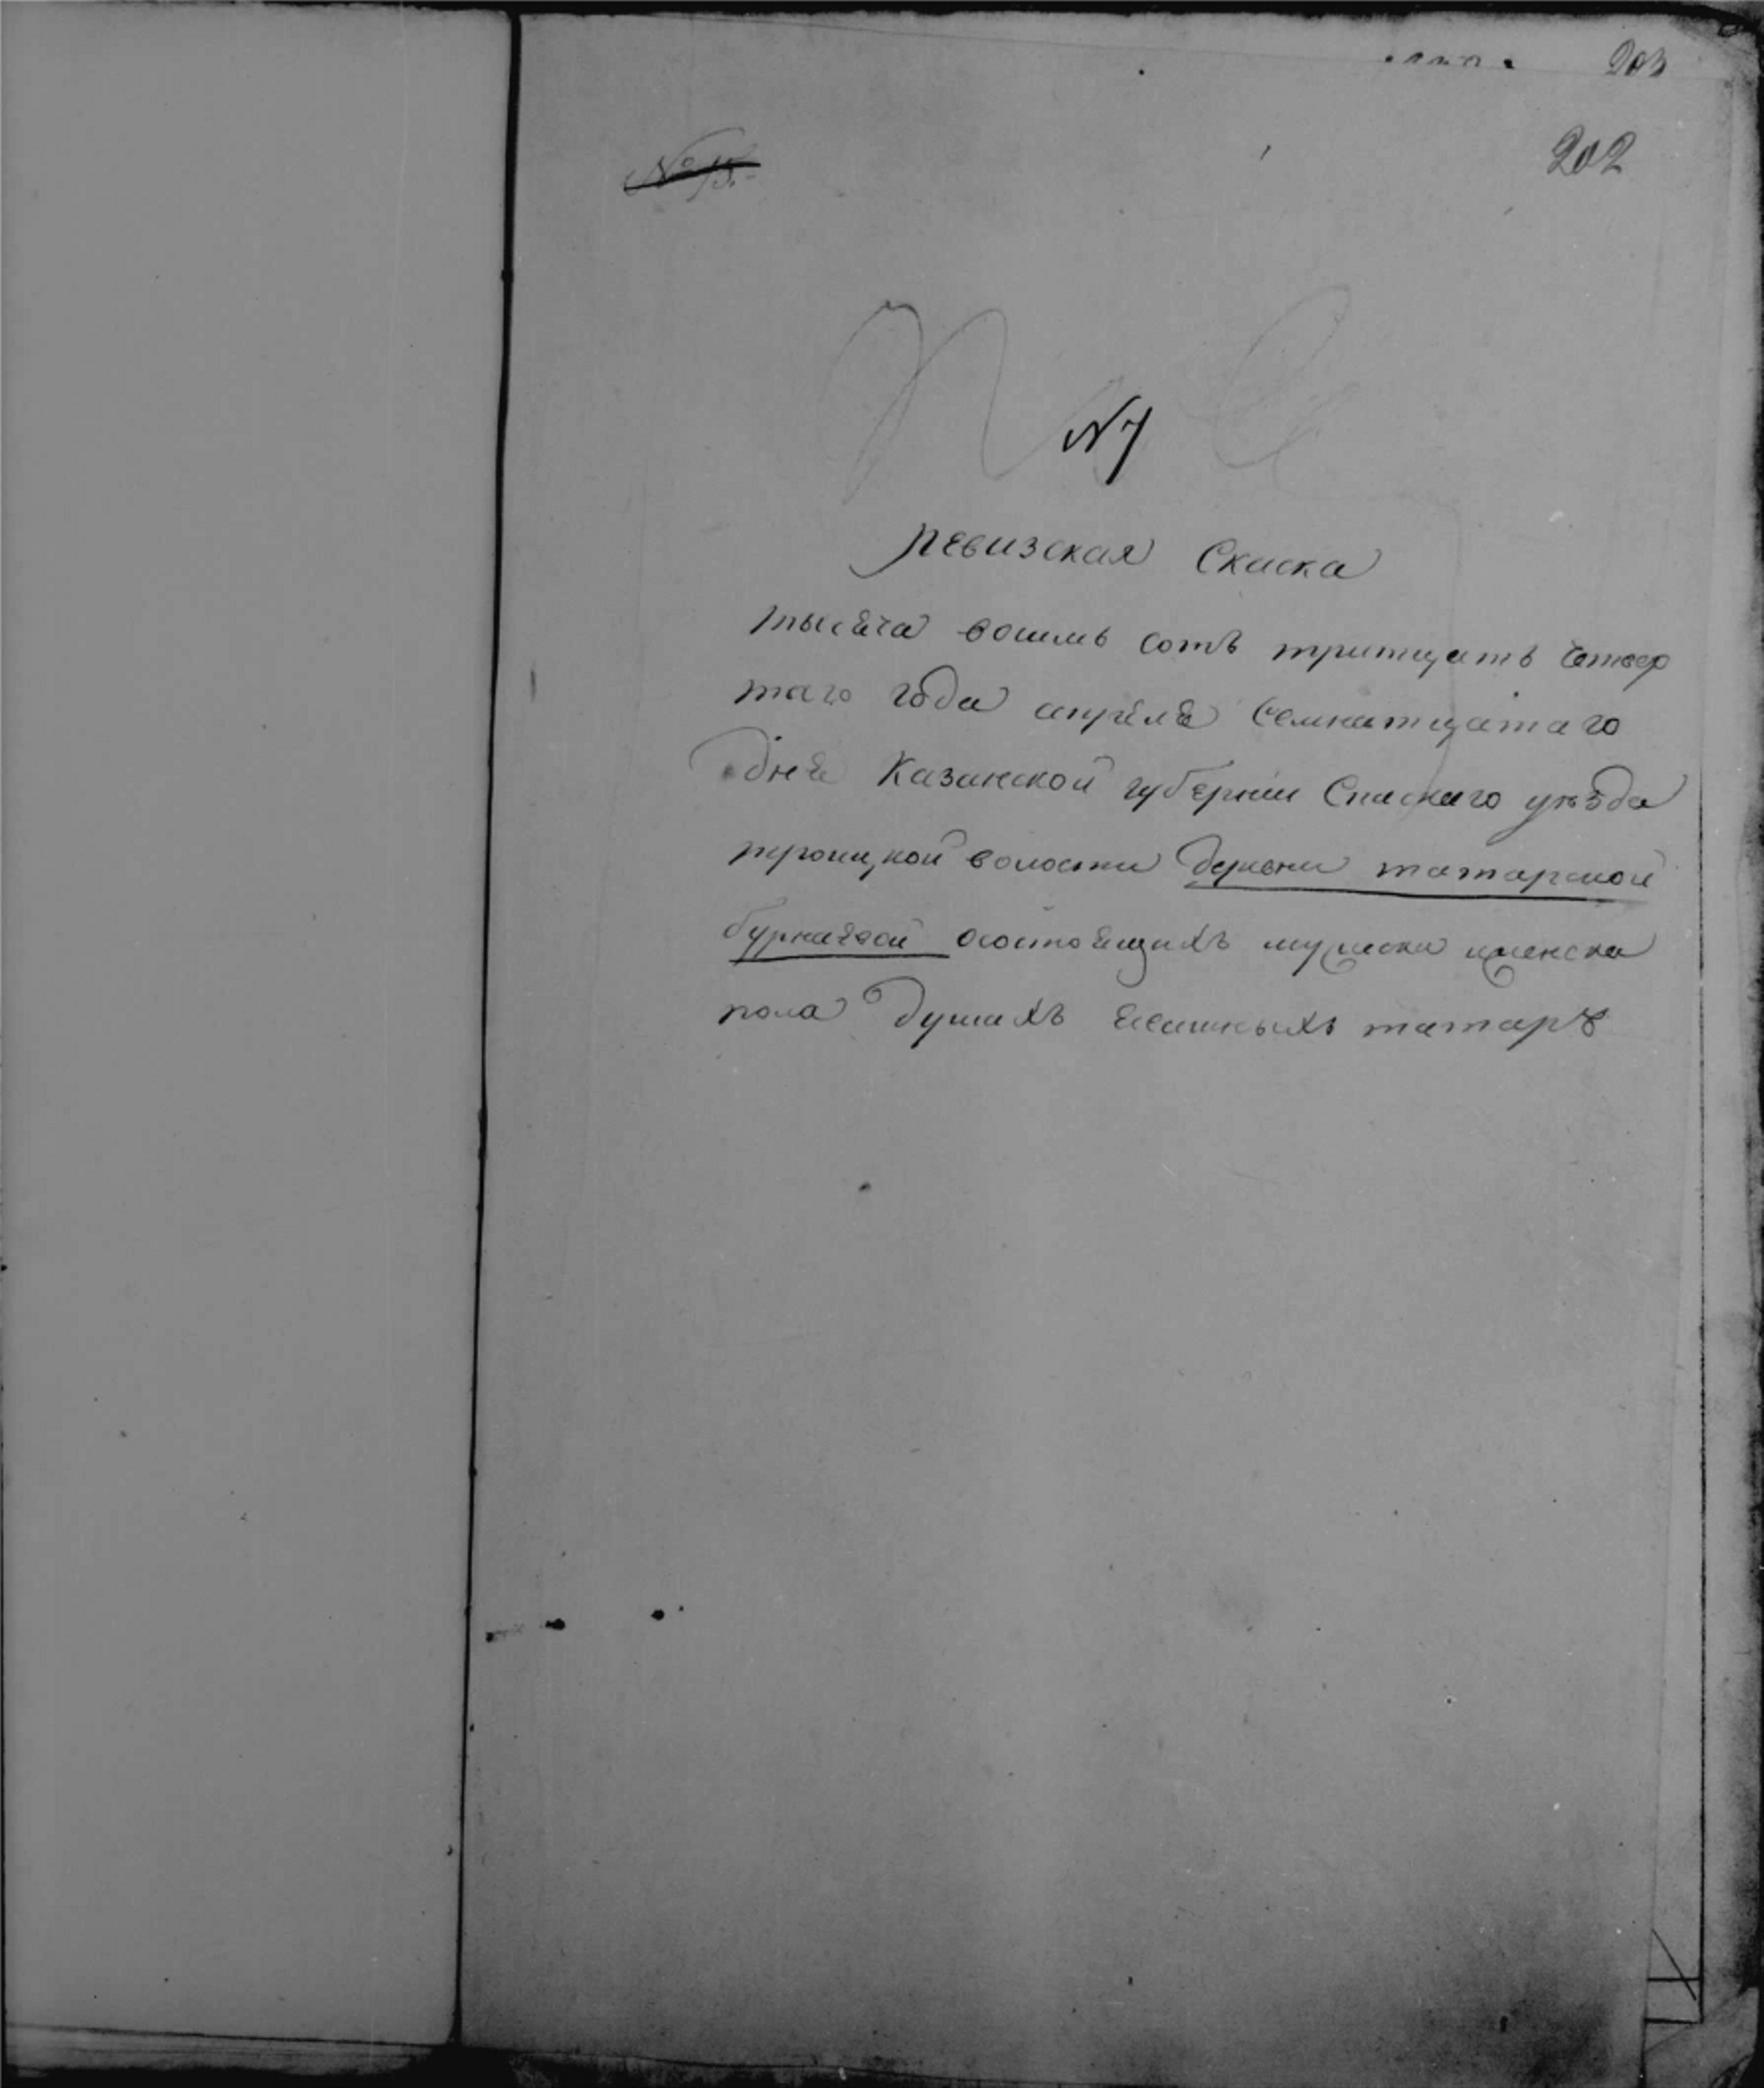 203
202
№ 15.
N 7
Ревизская Скаска
тысяча восимь сотъ тритцать четвер
таго года апреля семнатцатаго
дня Казанской губернии Спаскаго уѣзда
троицкой волости деревни татарской
бурнаевой осостоящихъ мужеска иженска
пола душахъ ясашныхъ татаръ